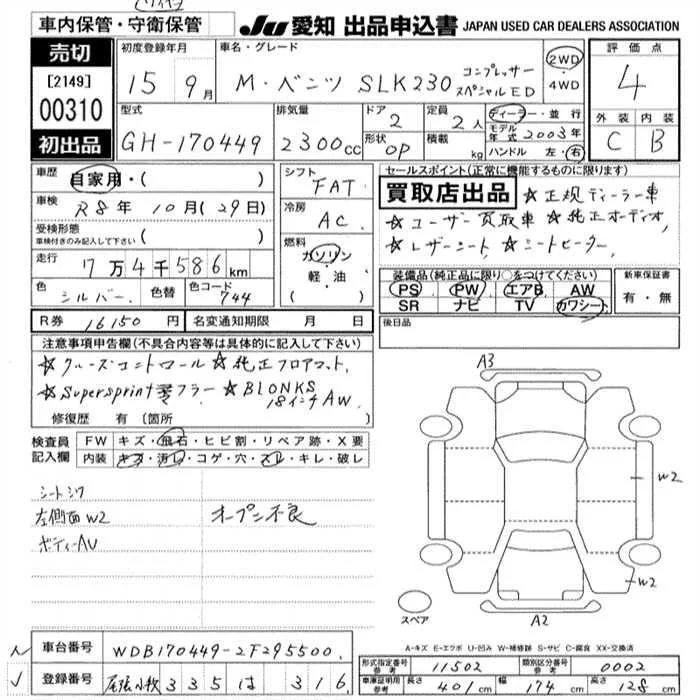 車内保管・守衛保管
JU 愛知 出品申込書 JAPAN USED CAR DEALERS ASSOCIATION
売切
[2149]
00310
初出品
初度登録年月
15 9月
車名・グレード
M・ベンツ SLK230 コンプレッサー
スペシャルED
2WD・
4WD
評価点
4
外装 内装
C B
型式
GH-170449
排気量
2300cc
ドア
2
形状 OP
定員
2人
積載 kg
ディーラー・並行
モデル年式 2003年
ハンドル 左・右
車歴 自家用・( )
車検 R8年10月(29日)
受検形態
車検付きのみ記入して下さい ( )
走行 7万4千586km
色 シルバー 色替 色コード 744
シフト
FAT
冷房
AC
燃料
ガソリン
・
軽・油
( )
セールスポイント(正常に機能するものに限る)
買取店出品 ☆正規ディーラー車
☆ユーザー買取車 ☆純正オーディオ,
☆レザーシート, ☆シートヒーター,
装備品(純正品に限り○をつけてください)
PS PW エアB AW
SR ナビ TV カワシート
新車保証書
有・無
R券 16150円 名変通知期限 月 日
後日品
注意事項申告欄(不具合内容等は具体的に記入して下さい)
☆クルーズコントロール ☆純正フロアマット,
☆Supersprint マフラー ☆BLONKS
18インチAW.
修復歴 有 〔箇所 〕
検査員
記入欄
FW キズ・飛石・ヒビ割・リペア跡・X要
内装 キズ・汚レ・コゲ・穴・スレ・キレ・破レ
シートシワ
左側面W2 オープン不良
ボディーAU
A3
W2
W2
スペア
A2
車台番号 WDB170449-2F295500.
登録番号 尾張小牧 335 は 316
A-キズ E-エクボ U-凹み W-補修跡 S-サビ C-腐食 XX-交換済
形式指定番号
参考 11502
類別区分番号
参考 0002
車庫証明用
参考 長さ 401cm 幅 174cm 高さ 128cm